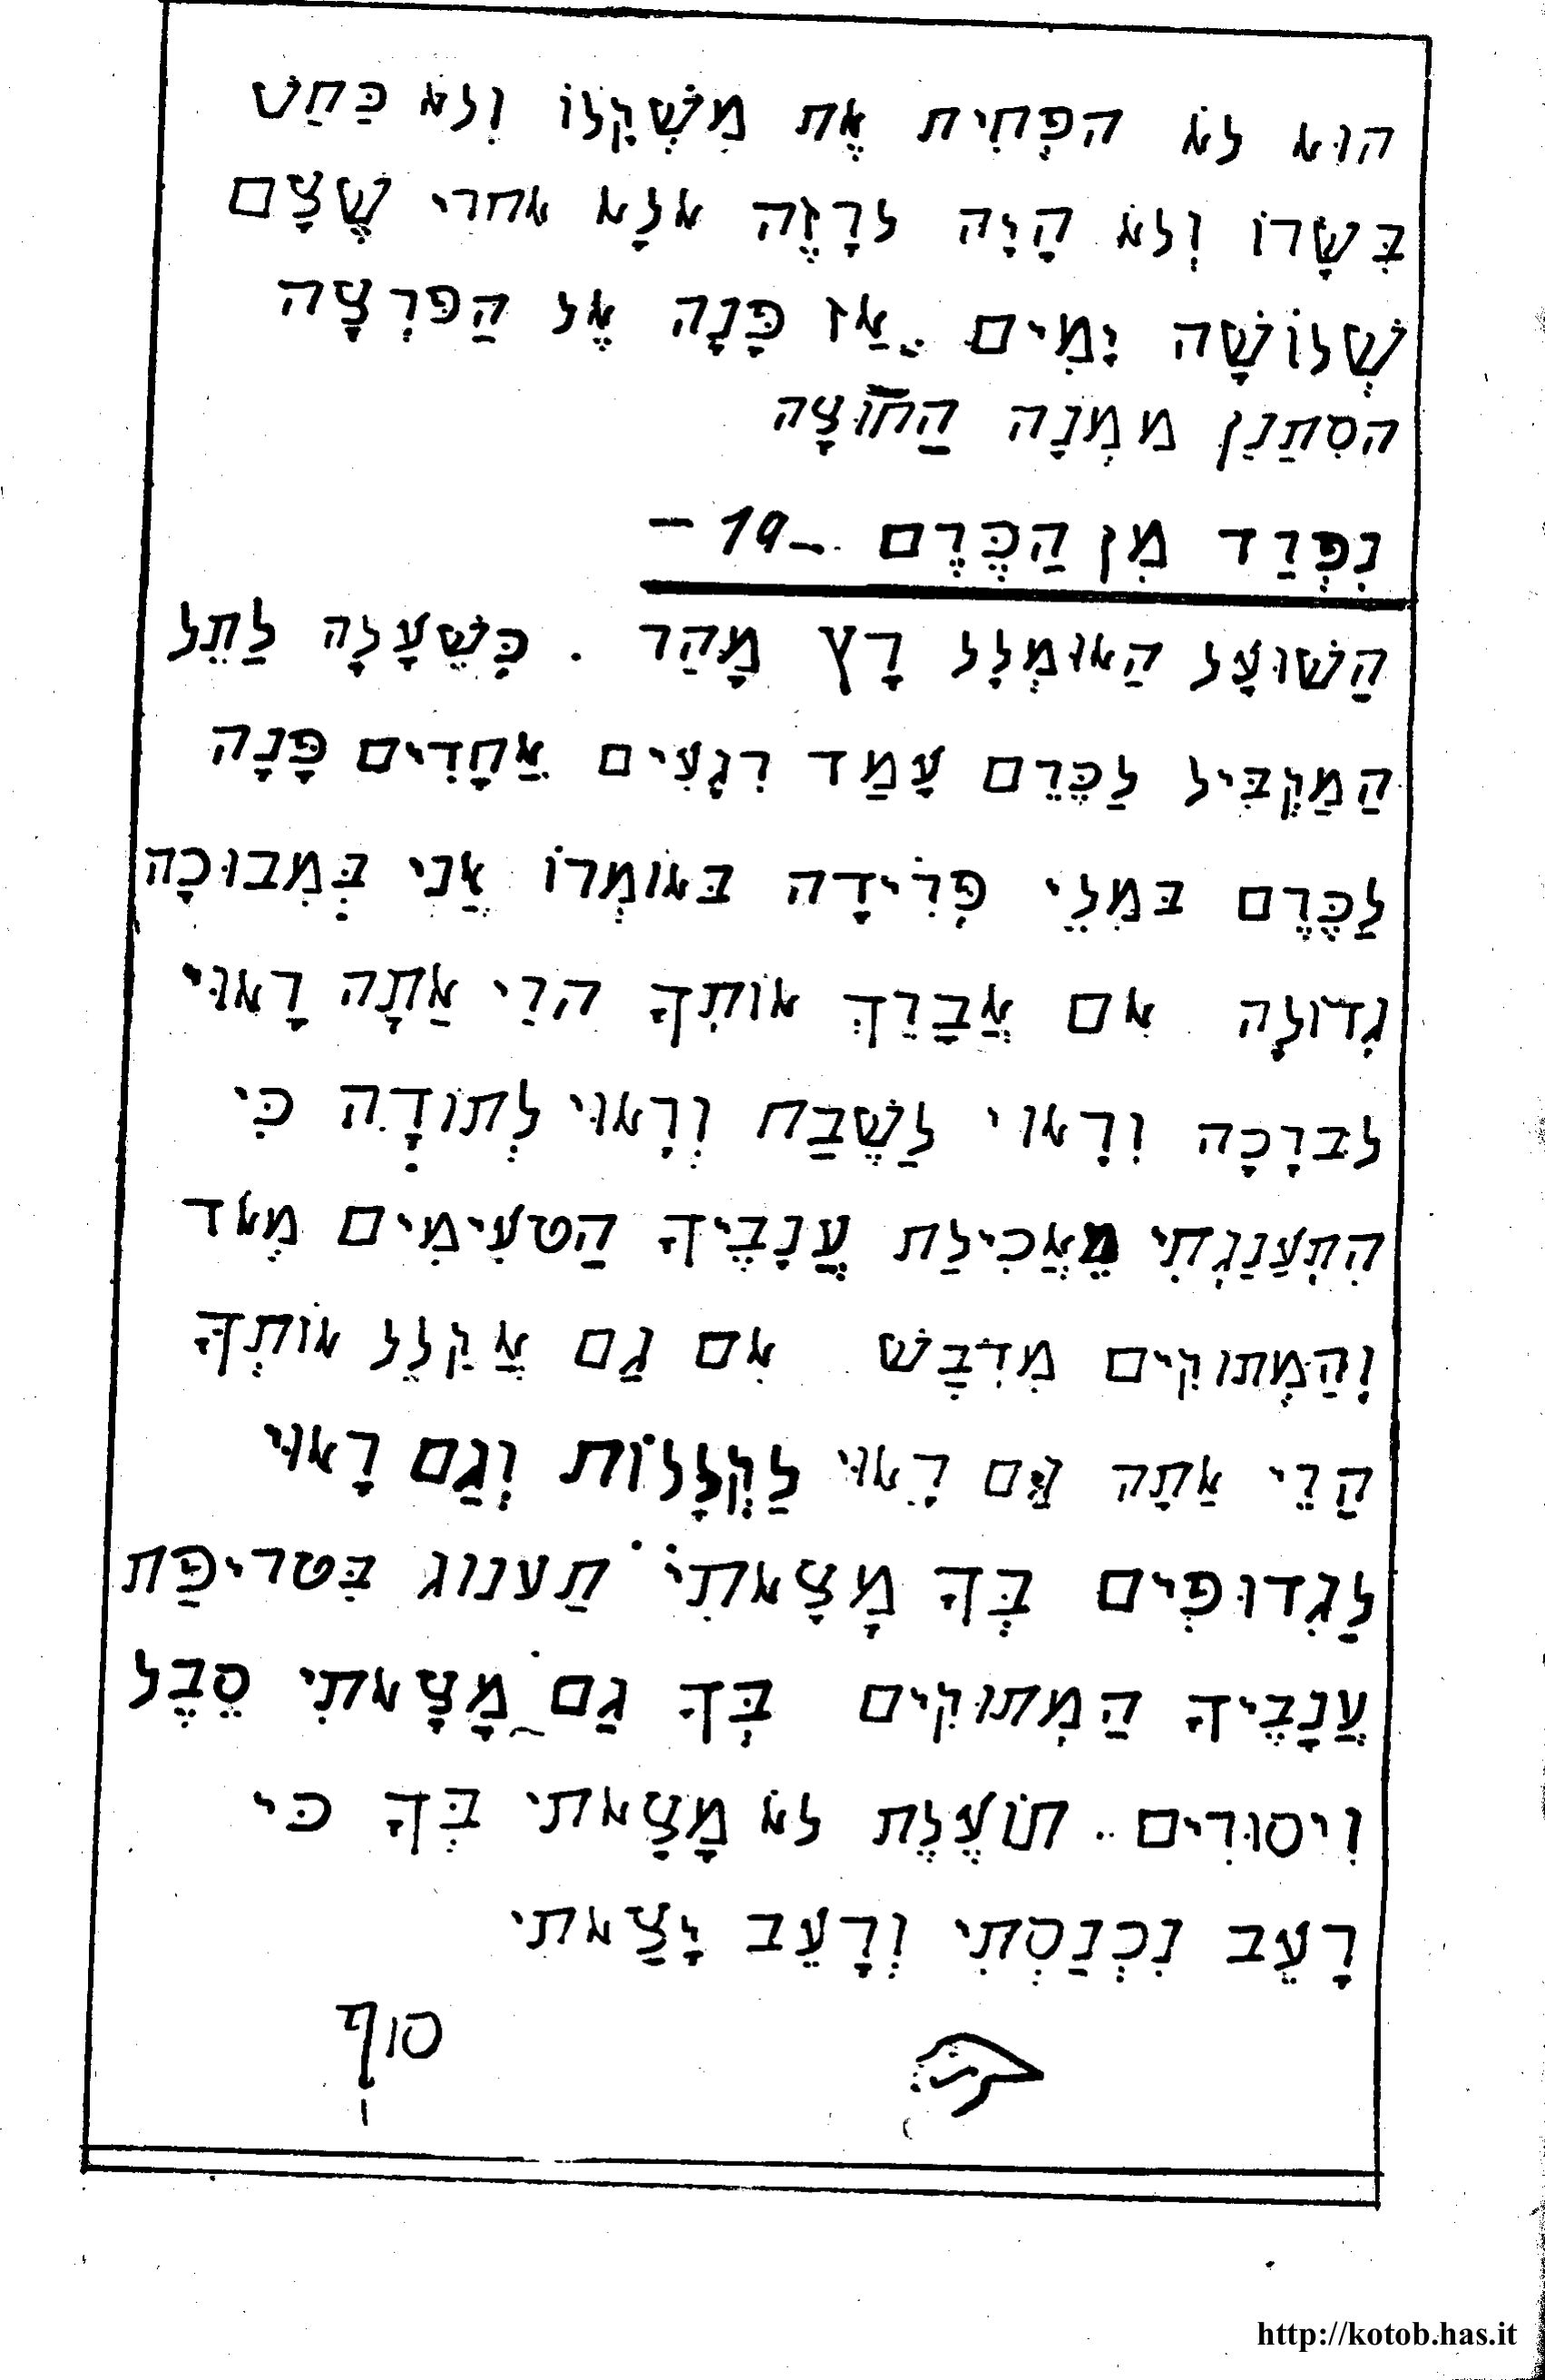 הוּא לֹא הפְחִית אֶת מִשְׁקָלוֹ וְלֹא כַּחַשׁ
בְּשָׂרוֹ וְלֹא הָיָה לרָזֶה אלָא אחרִי שֶׁצָם
שְׁלוֹשָׁה יָמִים אַז פָּנָה אֶל הַפִרְצָה
הסִתַנֵן ממְנָה הַחוּצָה
נִפְרַד מִן הַכֶּרֶם -19-
הַשׁוּעָל הַאוּמְלָל רָץ מָהַר . כְּשֶׁעָלָה לַתֵל
הַמַקְבִּיל לַכֶּרֵם עָמַד רִגָעִים אֲחָדִים פָּנָה
לַכֶּרֶם בּמִלֵי פְּרִידָה בּאוֹמְרוֹ אֲנִי בְּמִבוּכָה
גְדוֹלָה אִם אֲבָרֵךְ אוֹתְךָ הרֵי אַתָה רָאוּי
לבּרָכָה וְרָאוי לַשֶׁבַח וְרָאוּי לְתוֹדָה כִּי
הִתְעַנַגְתִי מֵאֲכִילַת עֲנָבֶיךָ הַטעִימִים מְאֹד
וְהַמְתוּקִים מִדְבָשׁ אִם גַם אֲקַלֵל אוֹתְךָ
הַרֵי אַתָה גַּם רָאוּי לַקְלָלוֹת וְגַם רָאוּי
לַגִדוּפִים בְּךָ מָצָאתִי תַענוּג בִּטרִיפַת
עֲנָבֶיךָ הַמְתוּקִים בְּךָ גַם מָצָאתִי סֵבֶל
וְיסוּרִים.. תוֹעֶלֶת לֹא מָצָאתי בְּךָ כּי
רָעֵב נִכְנַסְתִי וְרָעֵב יָצַאתי
סוף
http://kotob.has.it